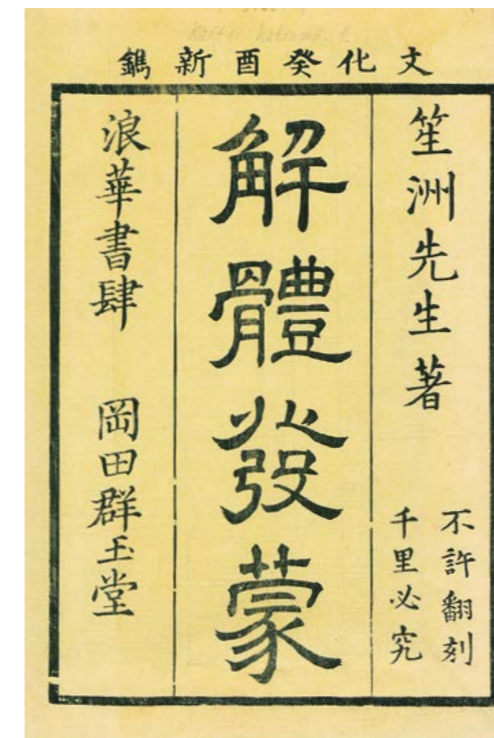 文化癸酉新鐫
笙洲先生著
不許翻刻
千里必究
解體發蒙
浪華書肆 岡田群玉堂